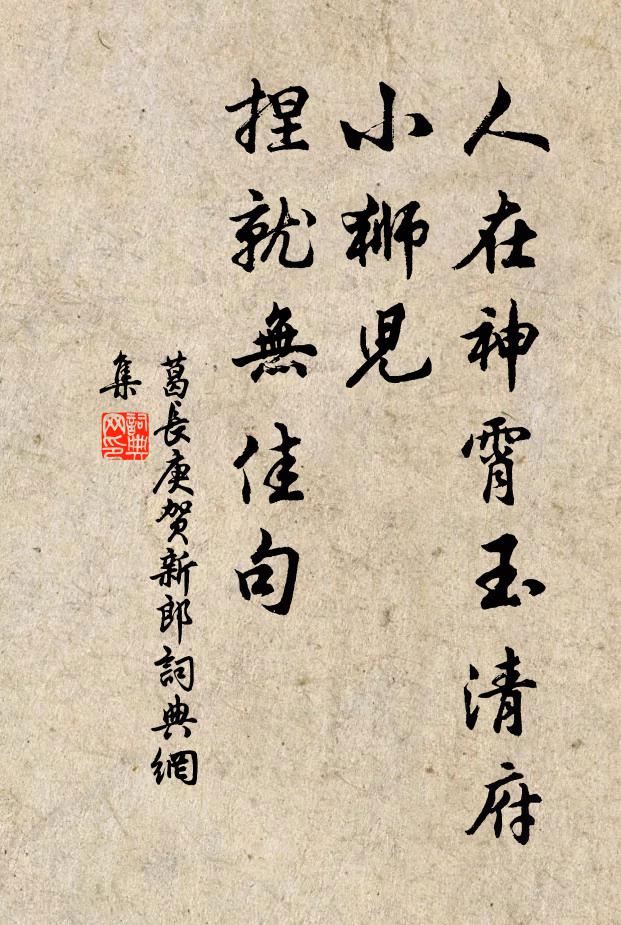 人在神霄玉清府
小獅兒
捏就無佳句
葛長庚賀新郎詞典網
集
詞典
网印